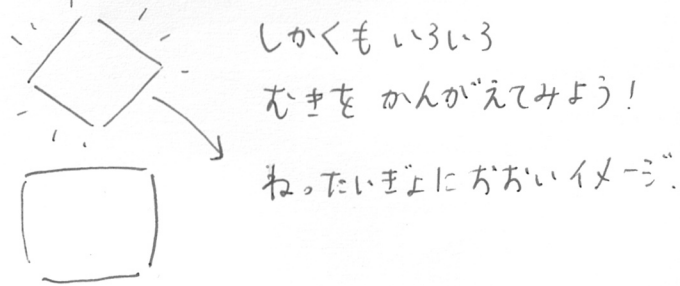 しかくも いろいろ
むきを かんがえてみよう！
ねったいぎょに おおい イメージ.